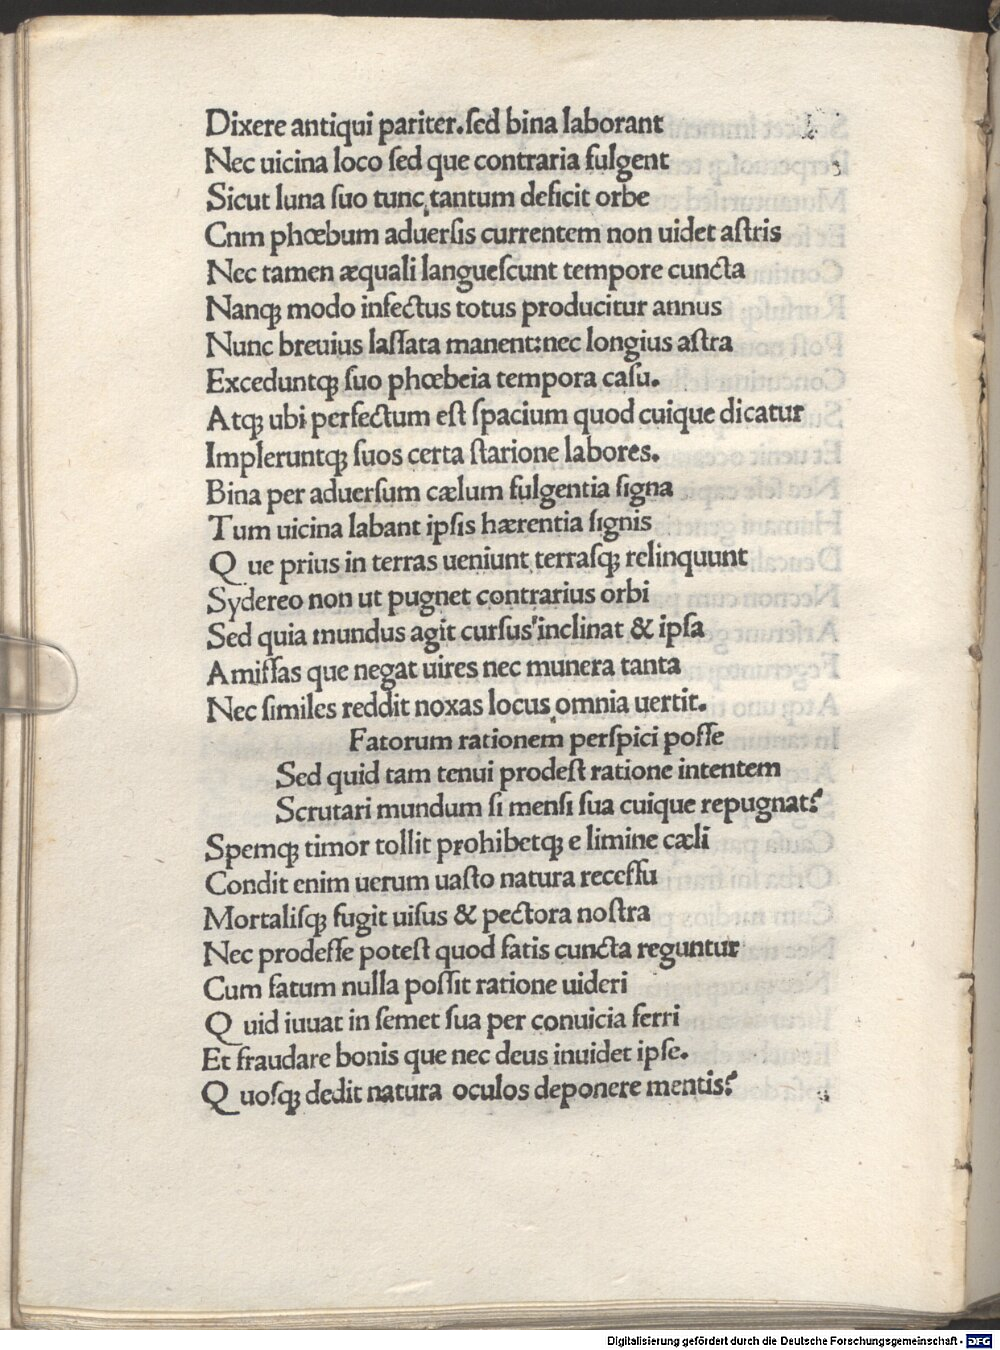 Dixere antiqui pariter. ſed bina laborant
Nec uicina loco ſed que contraria fulgent
Sicut luna ſuo tunc tantum deficit orbe
Cnm phœbum aduerſis currentem non uidet aſtris
Nec tamen æquali langueſcunt tempore cuncta
Nanqꝫ modo infectus totus producitur annus
Nunc breuius laſſata manent: nec longius aſtra
Exceduntqꝫ ſuo phœbeia tempora caſu.
Atqꝫ ubi perfectum eſt ſpacium quod cuique dicatur
Impleruntqꝫ ſuos certa ſtarione labores.
Bina per aduerſum cælum fulgentia ſigna
Tum uicina labant ipſis hærentia ſignis
Q ue prius in terras ueniunt terraſqꝫ relinquunt
Sydereo non ut pugnet contrarius orbi
Sed quia mundus agit curſus' inclinat & ipſa
Amiſſas que negat uires nec munera tanta
Nec ſimiles reddit noxas locus omnia uertit.
Fatorum rationem perſpici poſſe
Sed quid tam tenui prodeſt ratione intentem
Scrutari mundum ſi menſi ſua cuique repugnat?
Spemqꝫ timor tollit prohibetqꝫ e limine cæli
Condit enim uerum uaſto natura receſſu
Mortaliſqꝫ fugit uiſus & pectora noſtra
Nec prodeſſe poteſt quod fatis cuncta reguntur
Cum fatum nulla poſſit ratione uideri
Q uid iuuat in ſemet ſua per conuicia ferri
Et fraudare bonis que nec deus inuidet ipſe.
Q uoſqꝫ dedit natura oculos deponere mentis?
Digitalisierung gefördert durch die Deutsche Forschungsgemeinschaft - DFG